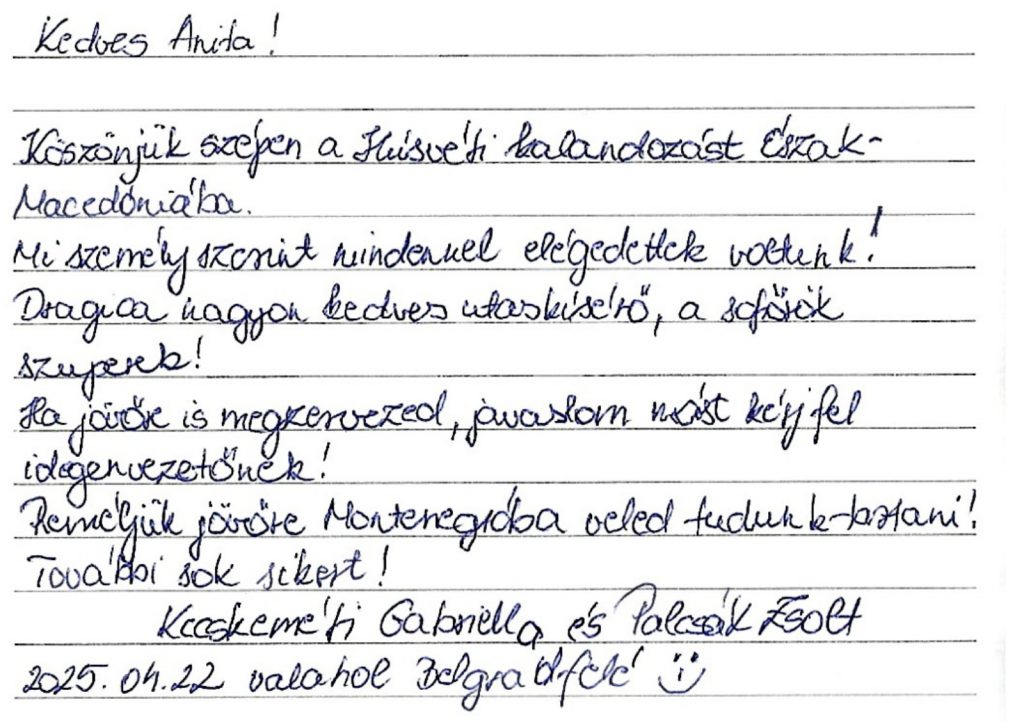 Kedves Anita!
Köszönjük szépen a Húsvéti kalandozást Észak-
Macedóniába.
Mi személy szerint mindennel elégedettek voltunk!
Dragica nagyon kedves utaskísérő, a sofőrök
szuperek!
Ha jövőre is megszervezed, javaslom mást kérj fel
idegenvezetőnek!
Reméljük jövőre Montenegróba veled tudunk tartani!
További sok sikert!
Kecskeméti Gabriella és Palcsák Zsolt
2025. 04. 22 valahol Belgrád felé